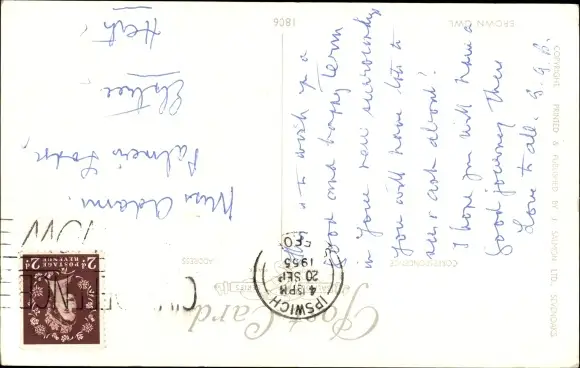 BROWN OWL
1806
COPYRIGHT PRINTED & PUBLISHED BY J. SALMON LTD. SEVENOAKS
Post Card
CORRESPONDENCE
ADDRESS
IPSWICH
4 15PM
20 SEP
1955
POSTAGE
REVENUE
to wish you a
good and happy Term
in your new surroundings
You will have lots to
see & ask about!
I hope you will have a
Good journey Then
Love to all. G.G.B.
Miss Adams.
Palmers
Elstree,
Herts,